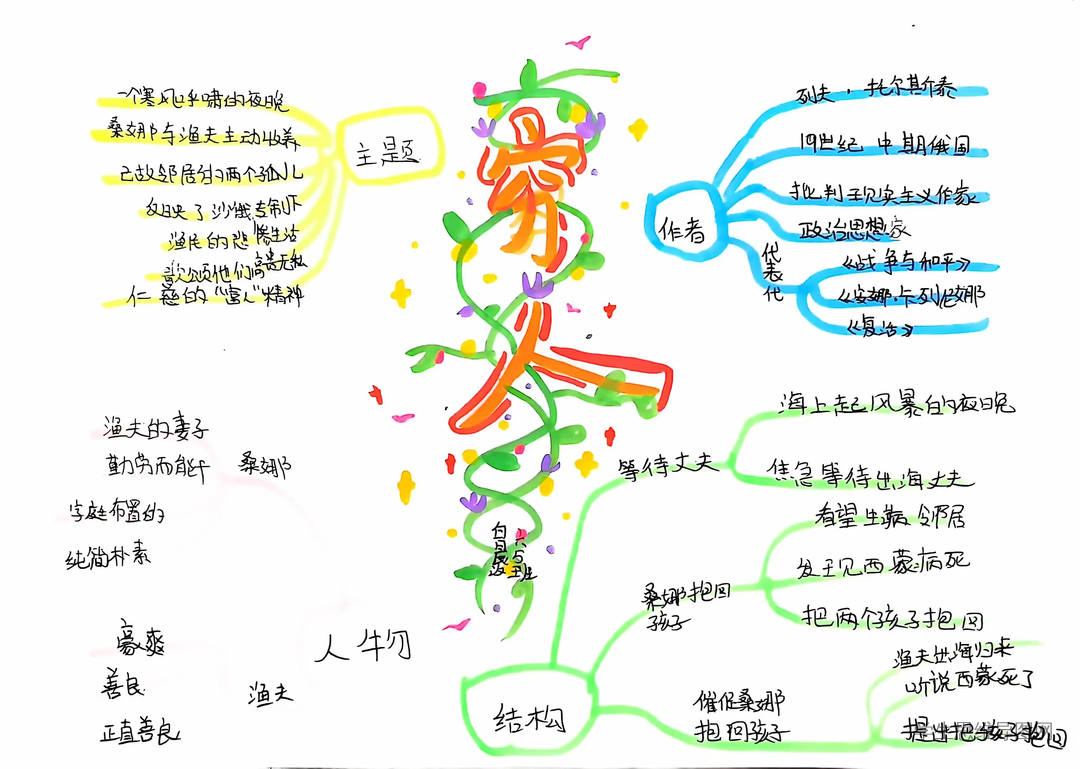 穷人
主题
一个寒风呼啸的夜晚
桑娜与渔夫主动收养
已故邻居的两个孤儿
反映了沙俄专制下
渔民的悲惨生活
歌颂他们高尚无私
仁慈的“富人”精神
作者
列夫·托尔斯泰
19世纪中期俄国
批判现实主义作家
政治思想家
代表代
《战争与和平》
《安娜·卡列尼娜
《复活》
人物
桑娜
渔夫的妻子
勤劳而能干
字庭布置的
纯简朴素
渔夫
豪爽
善良
正直善良
六与班
结构
等待丈夫
海上起风暴的夜晚
焦急等待出海丈夫
桑娜抱回
孩子
看望生病邻居
发现西蒙病死
把两个孩子抱回
催促桑娜
抱回孩子
渔夫出海归来
听说西蒙死了
提出把孩子抱回